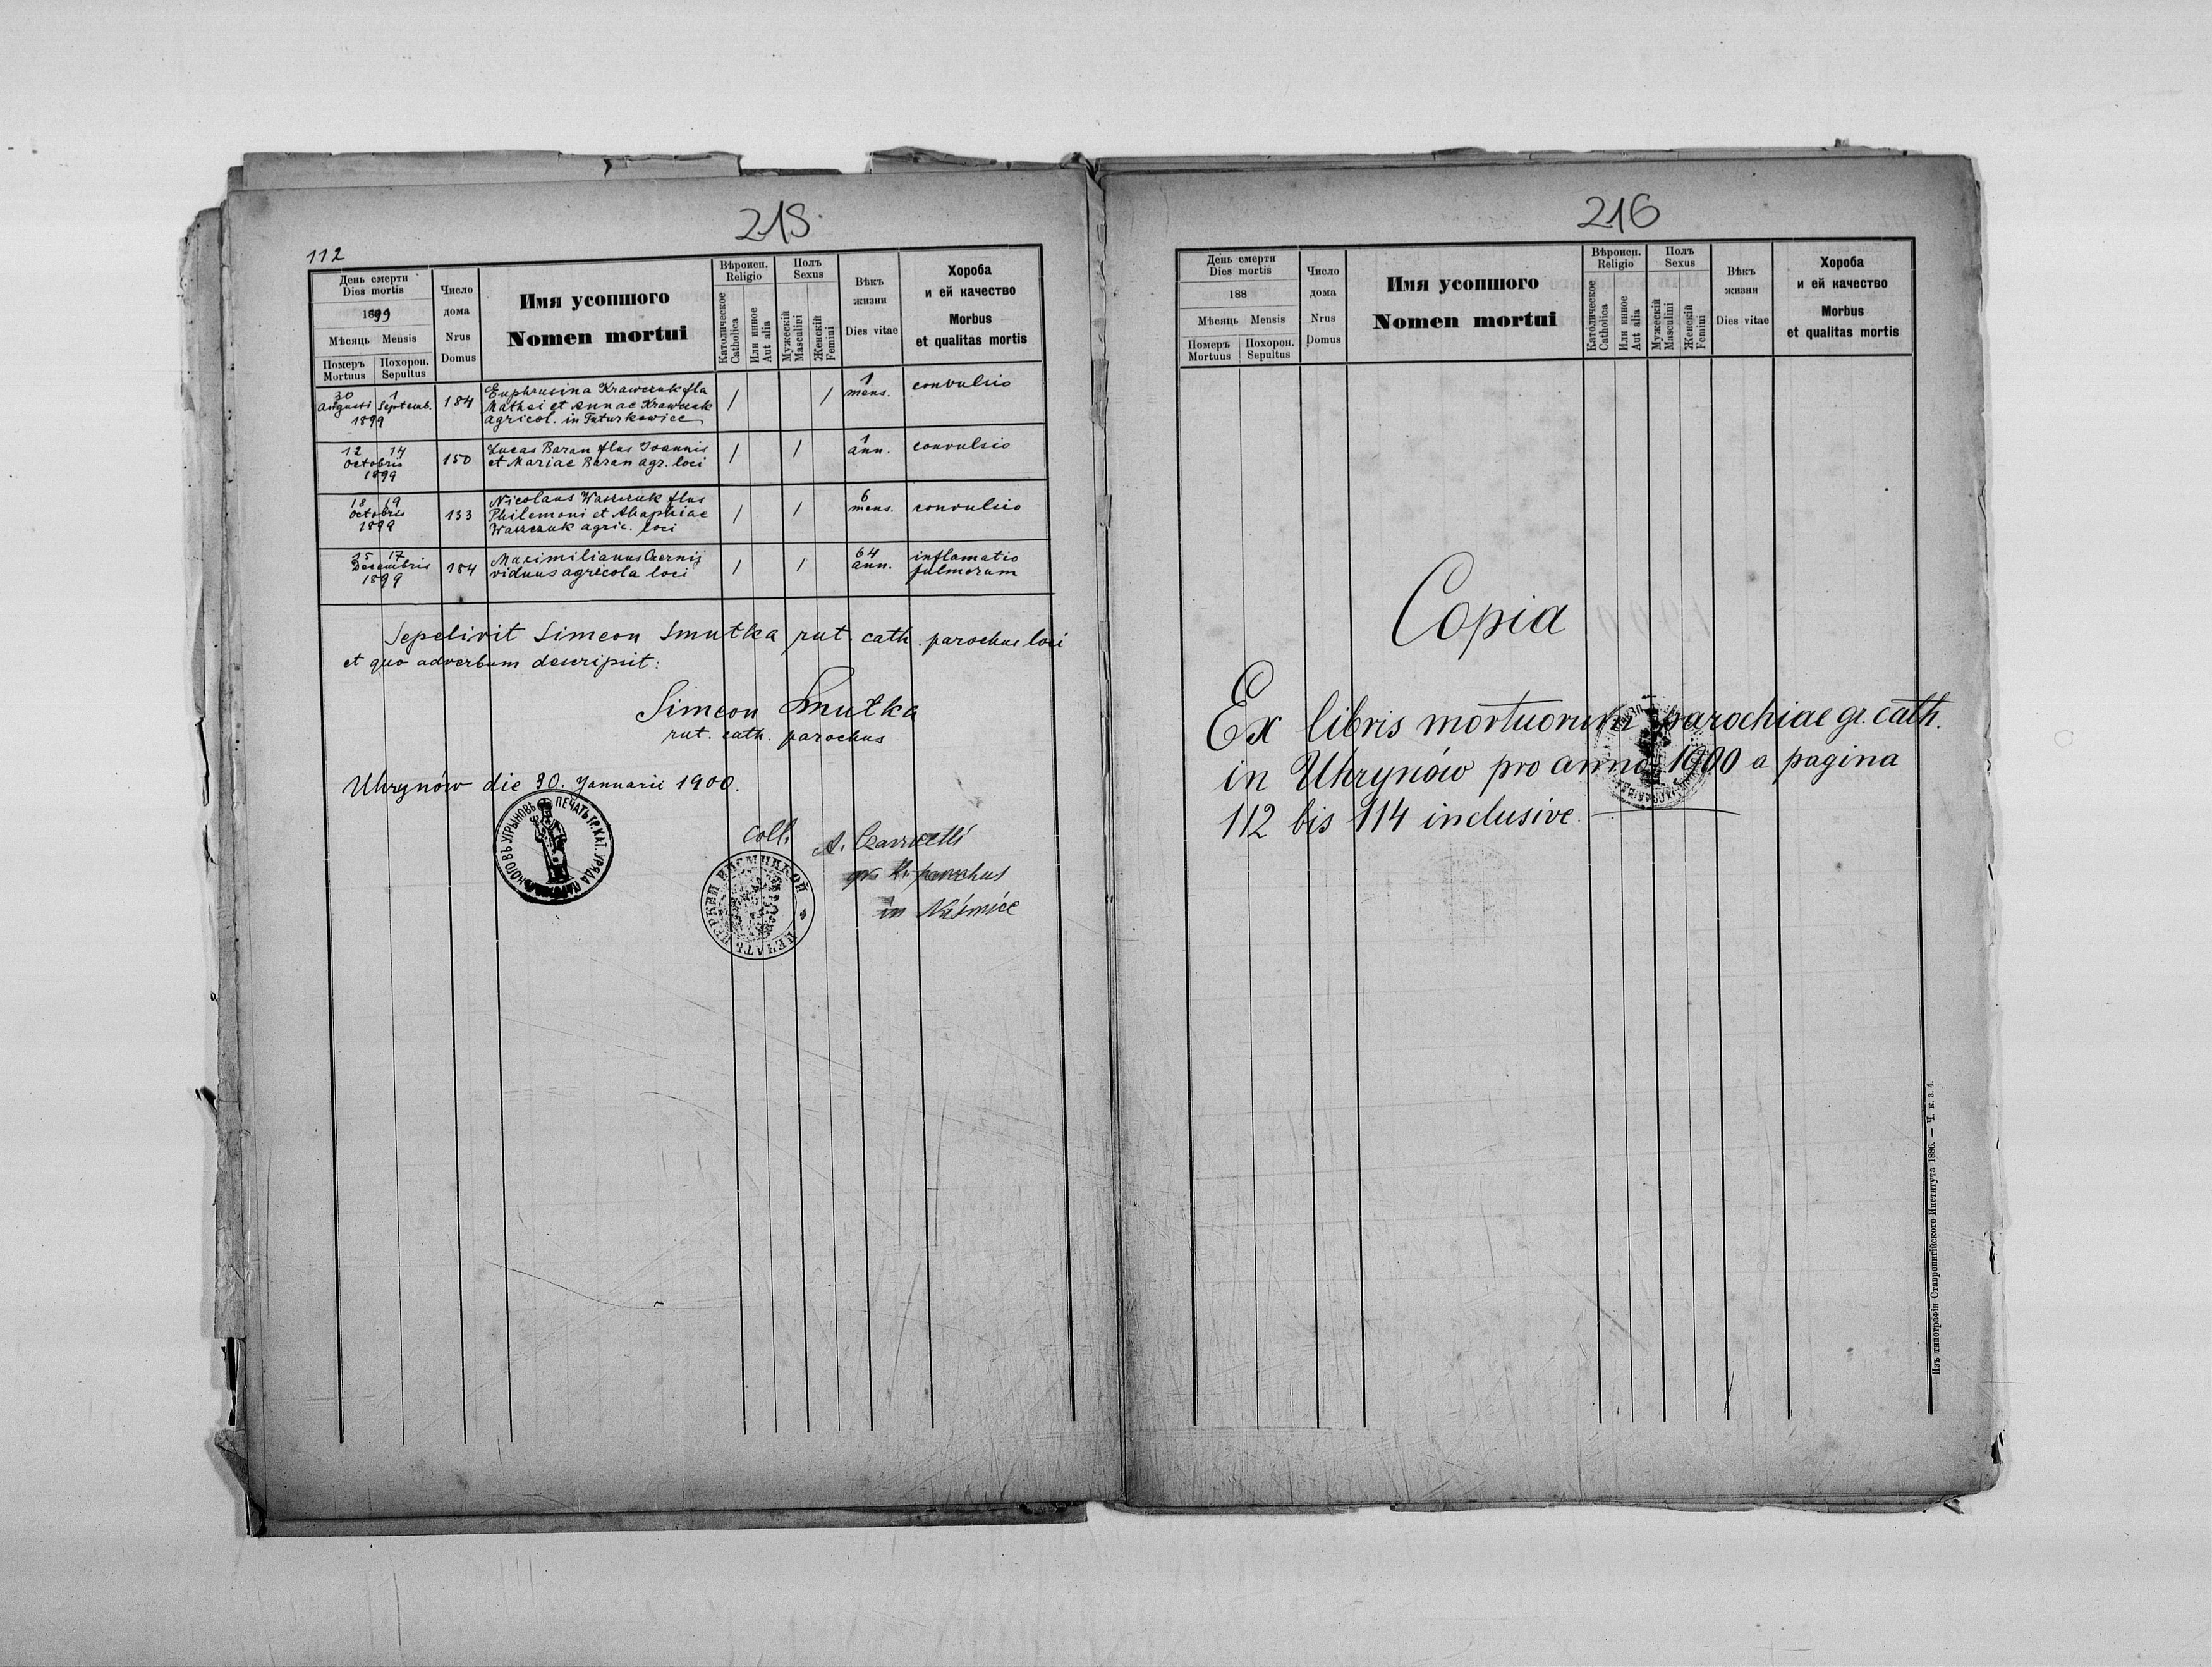 215
112
День смерти
Dies mortis
1899
Мѣсяць Mensis
Померъ Mortuus
Похорон. Sepultus
Число дома
Nrus Domus
Имя усопшого
Nomen mortui
Вѣроисп.
Religio
Католическое Catholica
Или инное Aut alia
Полъ
Sexus
Мужескій Masculini
Женскій Femini
Вѣкъ жизни
Dies vitae
Хороба
и ей качество
Morbus
et qualitas mortis
30 Augusti 1 Septemb. 1899 184 Euphrosina Krawczuk fla / / 1 mens. convulsio
Mathei et Annae Krawczuk
agricol. in Tuturkowice
12 14 Octobris 1899 150 Lucas Baran flus Joannis / / 1 ann. convulsio
et Mariae Baran agr. loci
18 19 Octobris 1899 133 Nicolaus Waszczuk flus / / 6 mens. convulsio
Philemoni et Ahaphiae
Waszczuk agric. loci
15 17 Decembris 1899 184 Maximilianus Czernij / / 64 ann. inflamatio
viduus agricola loci pulmorum
Sepelivit Simeon Smutka rut. cath. parochus loci
et quo adverbum descripsit:
Simeon Smutka
rut. cath. parochus
Uhrynów die 30. Januarii 1900.
coll. A.
parochus
in Nuśmice
ПЕЧАТЬ ЦЕРКВИ
216
День смерти
Dies mortis
188
Мѣсяць Mensis
Померъ Mortuus
Похорон. Sepultus
Число дома
Nrus Domus
Имя усопшого
Nomen mortui
Вѣроисп.
Religio
Католическое Catholica
Или инное Aut alia
Полъ
Sexus
Мужескій Masculini
Женскій Femini
Вѣкъ жизни
Dies vitae
Хороба
и ей качество
Morbus
et qualitas mortis
Copia
Ex libris mortuorum parochiae gr. cath.
in Uhrynów pro anno 1900 a pagina
112 bis 114 inclusive.
Изъ типографіи Ставропигійского Института 1886. — Ч. к. з. 4.